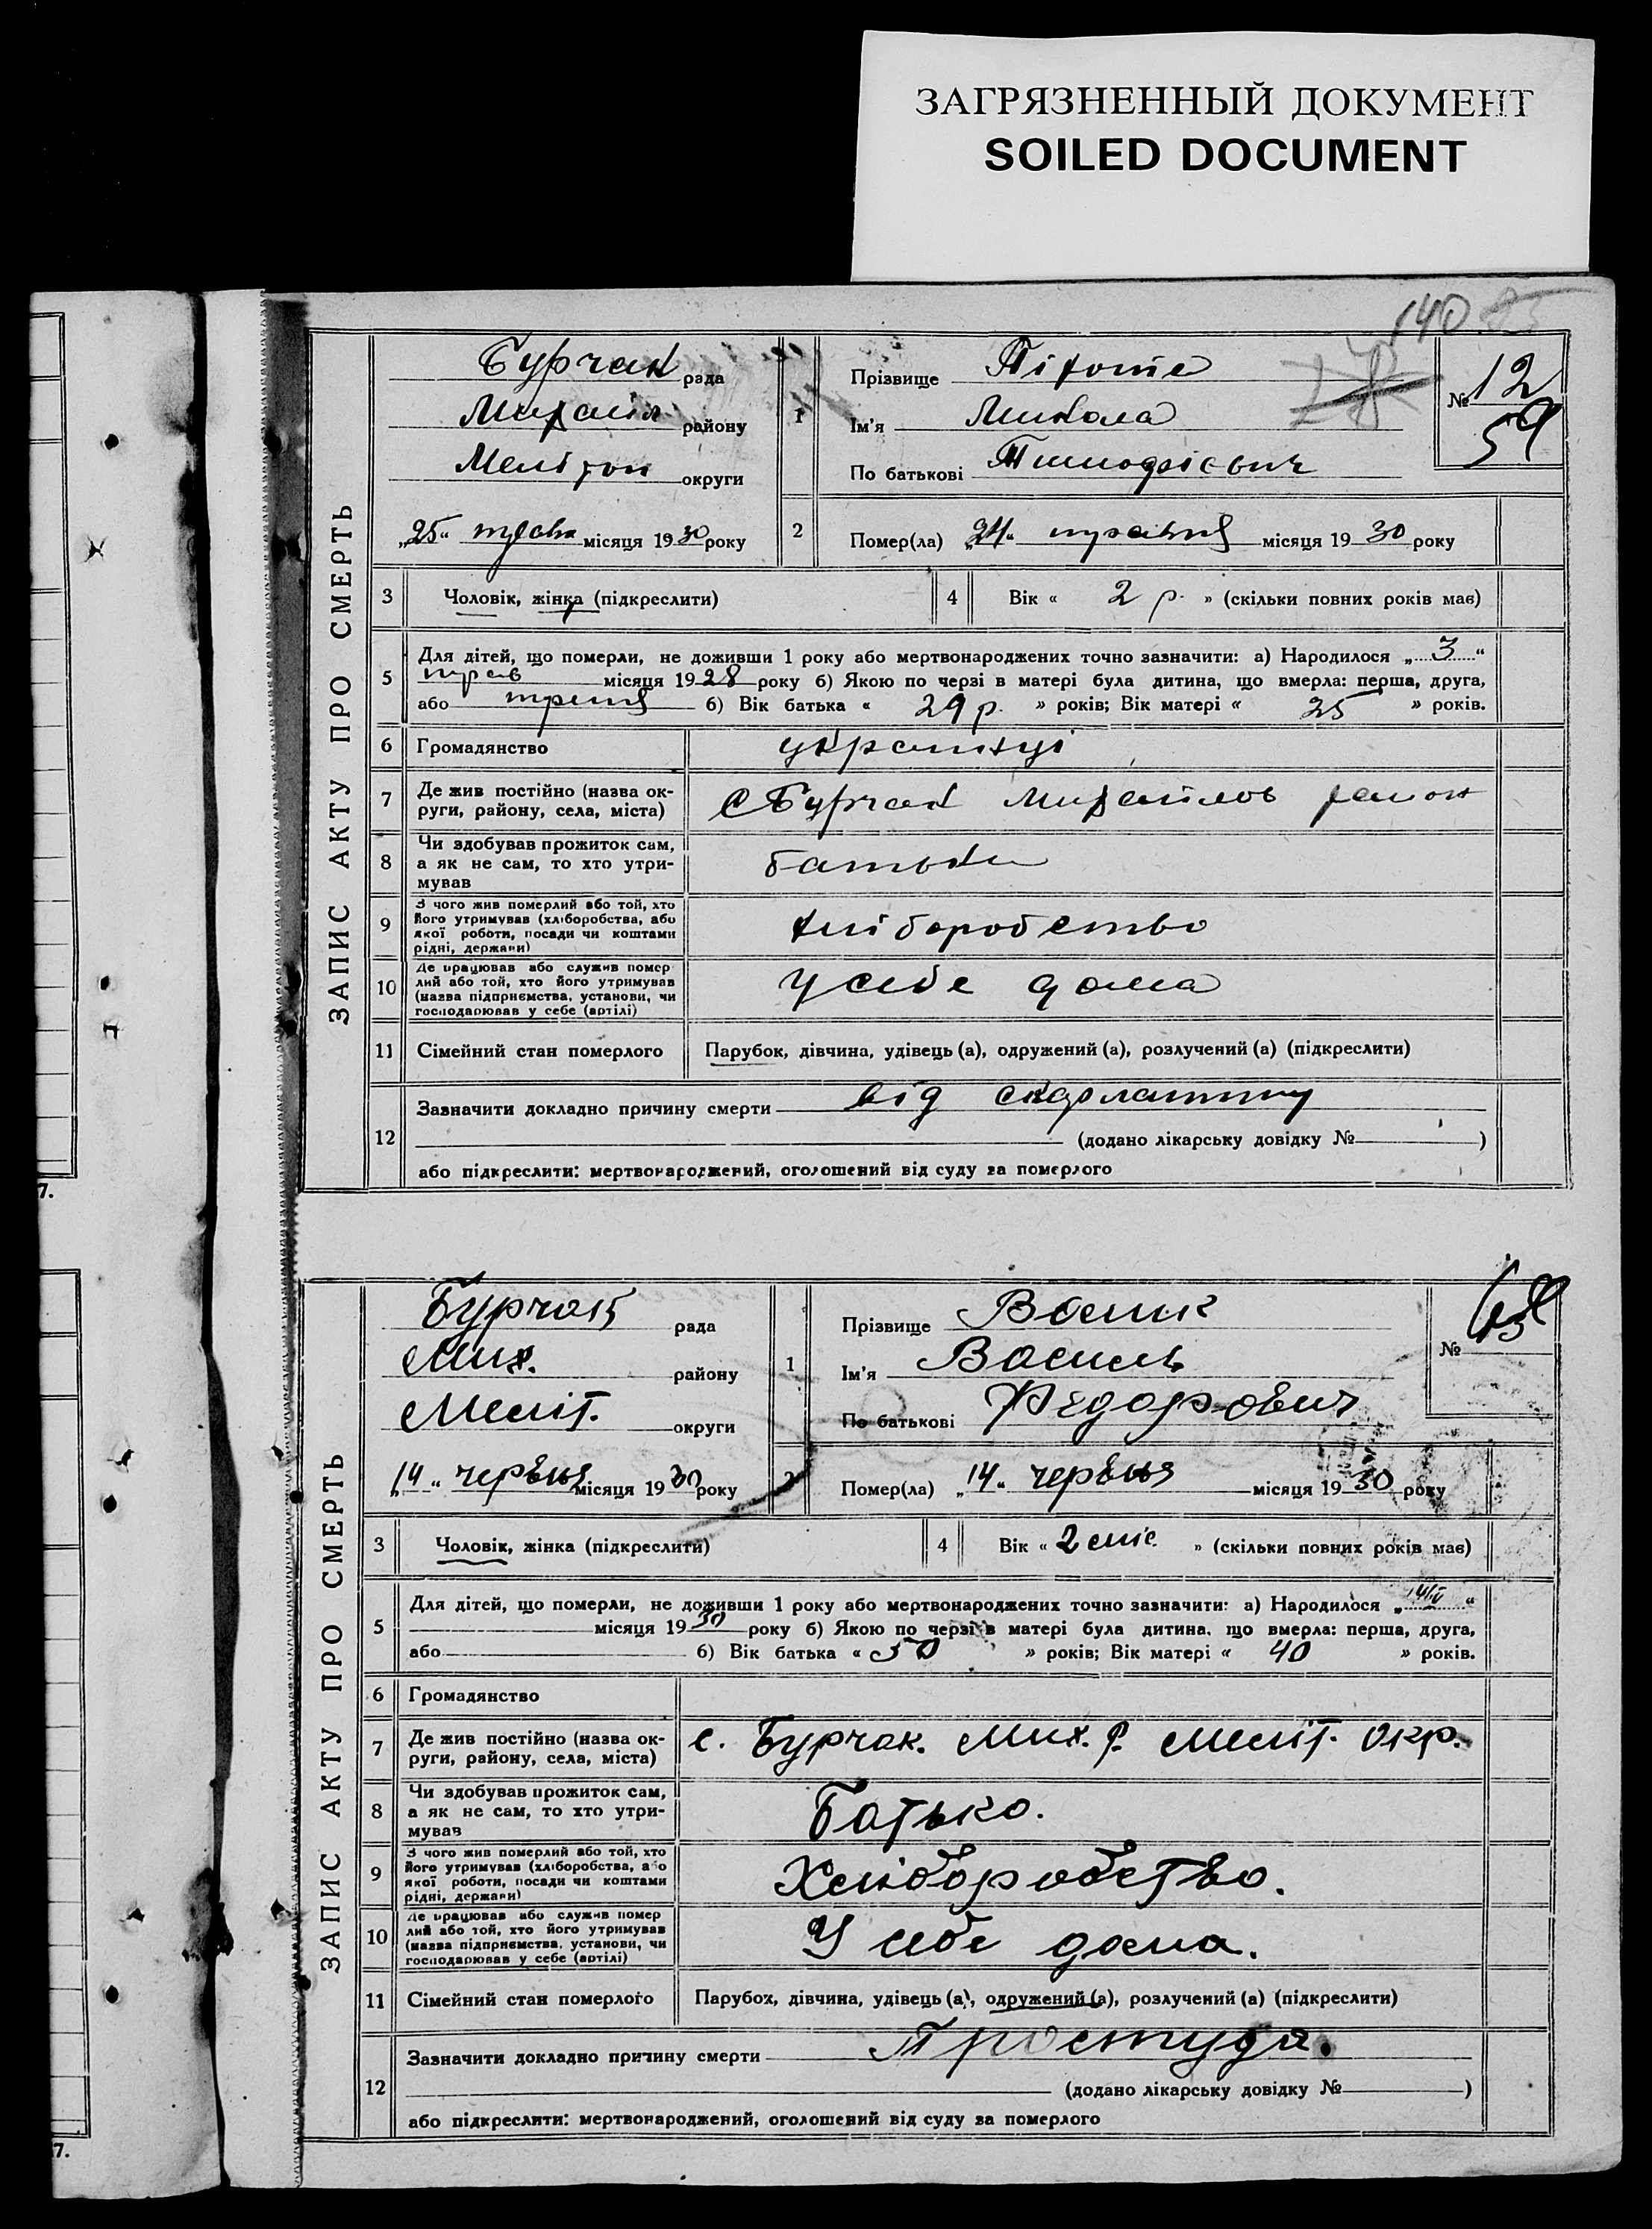 ЗАГРЯЗНЕННЫЙ ДОКУМЕНТ
SOILED DOCUMENT
140
ЗАПИС АКТУ ПРО СМЕРТЬ
Бурчак рада
району
округи
"25" місяця 1930 року
1
Прізвище
Ім'я Микола
По батькові Тимофієвич
№ 12
59
2
Помер(ла) "24" травня місяця 1930 року
3
Чоловік, жінка (підкреслити)
4
Вік « 2 р. » (скільки повних років має)
5
Для дітей, що померли, не доживши 1 року або мертвонароджених точно зазначити: а) Народилося „ 3 “
трав місяця 1928 року б) Якою по черзі в матері була дитина, що вмерла: перша, друга,
або третя б) Вік батька « 29 р. » років; Вік матері « 25 » років.
6
Громадянство українці
7
Де жив постійно (назва ок-
руги, району, села, міста)
с Бурчак Михайлов район
8
Чи здобував прожиток сам,
а як не сам, то хто утри-
мував
батьки
9
З чого жив померлий або той, хто
його утримував (хліборобства, або
якої роботи, посади чи коштами
рідні, держави)
хліборобство
10
Де працював або служив помер
лий або той, хто його утримував
(назва підприємства, установи, чи
господарював у себе (артілі)
У себе дома
11
Сімейний стан померлого
Парубок, дівчина, удівець (а), одружений (а), розлучений (а) (підкреслити)
12
Зазначити докладно причину смерти від скарлатини
(додано лікарську довідку № )
або підкреслити: мертвонароджений, оголошений від суду за померлого
7.
ЗАПИС АКТУ ПРО СМЕРТЬ
Бурчак рада
Мих. району
Меліт. округи
"14" червня місяця 1930 року
1
Прізвище
Ім'я Василь
По батькові Федорович
№
2
Помер(ла) „14“ червня місяця 1930 року
3
Чоловік, жінка (підкреслити)
4
Вік « 2 міс. » (скільки повних років має)
5
Для дітей, що померли, не доживши 1 року або мертвонароджених точно зазначити: а) Народилося „ 14/IV “
місяця 1930 року б) Якою по черзі в матері була дитина, що вмерла: перша, друга,
або б) Вік батька « 50 » років; Вік матері « 40 » років.
6
Громадянство
7
Де жив постійно (назва ок-
руги, району, села, міста)
с. Бурчак. Мих. р. Меліт. окр.
8
Чи здобував прожиток сам,
а як не сам, то хто утри-
мував
Батько.
9
З чого жив померлий або той, хто
його утримував (хліборобства, або
якої роботи, посади чи коштами
рідні, держави)
Хліборобство.
10
Де працював або служив помер
лий або той, хто його утримував
(назва підприємства, установи, чи
господарював у себе (артілі)
У себе дома.
11
Сімейний стан померлого
Парубох, дівчина, удівець (а), одружений (а), розлучений (а) (підкреслити)
12
Зазначити докладно причину смерти Простуда.
(додано лікарську довідку № )
або підкреслити: мертвонароджений, оголошений від суду за померлого
7.